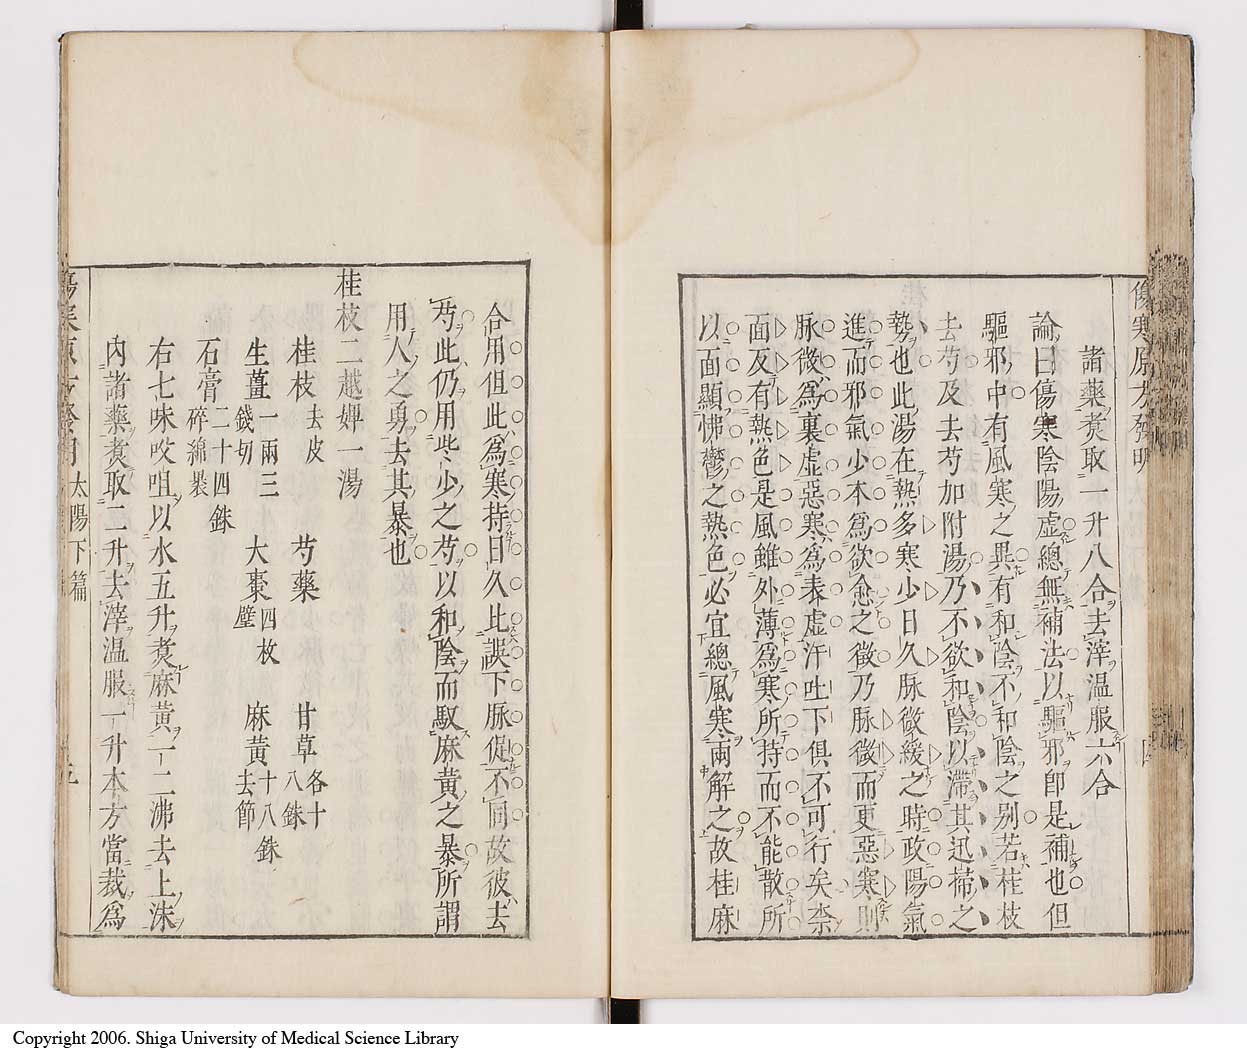 傷寒原方發明
諸藥煑取一升八合去滓温服六合
論曰傷寒陰陽虛總無補法以驅邪卽是補也但
驅邪中有風寒之異有和陰不和陰之別若桂枝
去芍及去芍加附湯乃不欲和陰以滯其迅掃之
勢也此湯在熱多寒少日久脉微緩之時政陽氣
進而邪氣少木爲欲愈之徵乃脉微而更惡寒則
脉微爲裏虛惡寒爲表虛汗吐下俱不可行矣柰
面反有熱色是風雖外薄爲寒所持而不能散所
以面顯怫鬱之熱色必宜總風寒兩解之故桂麻
合用但此爲寒持日久比誤下脉促不同故彼去
芍此仍用些少之芍以和陰而馭麻黄之暴所謂
用人之勇去其暴也
桂枝二越婢一湯
桂枝去皮 芍藥 甘草各十八銖
生薑一兩三錢切 大棗四枚擘 麻黄十八銖去節
石膏二十四銖碎綿裹
右七味㕮咀以水五升煑麻黄一二沸去上沫
内諸藥煑取二升去滓温服一升本方當裁爲
傷寒原方發明 太陽下篇